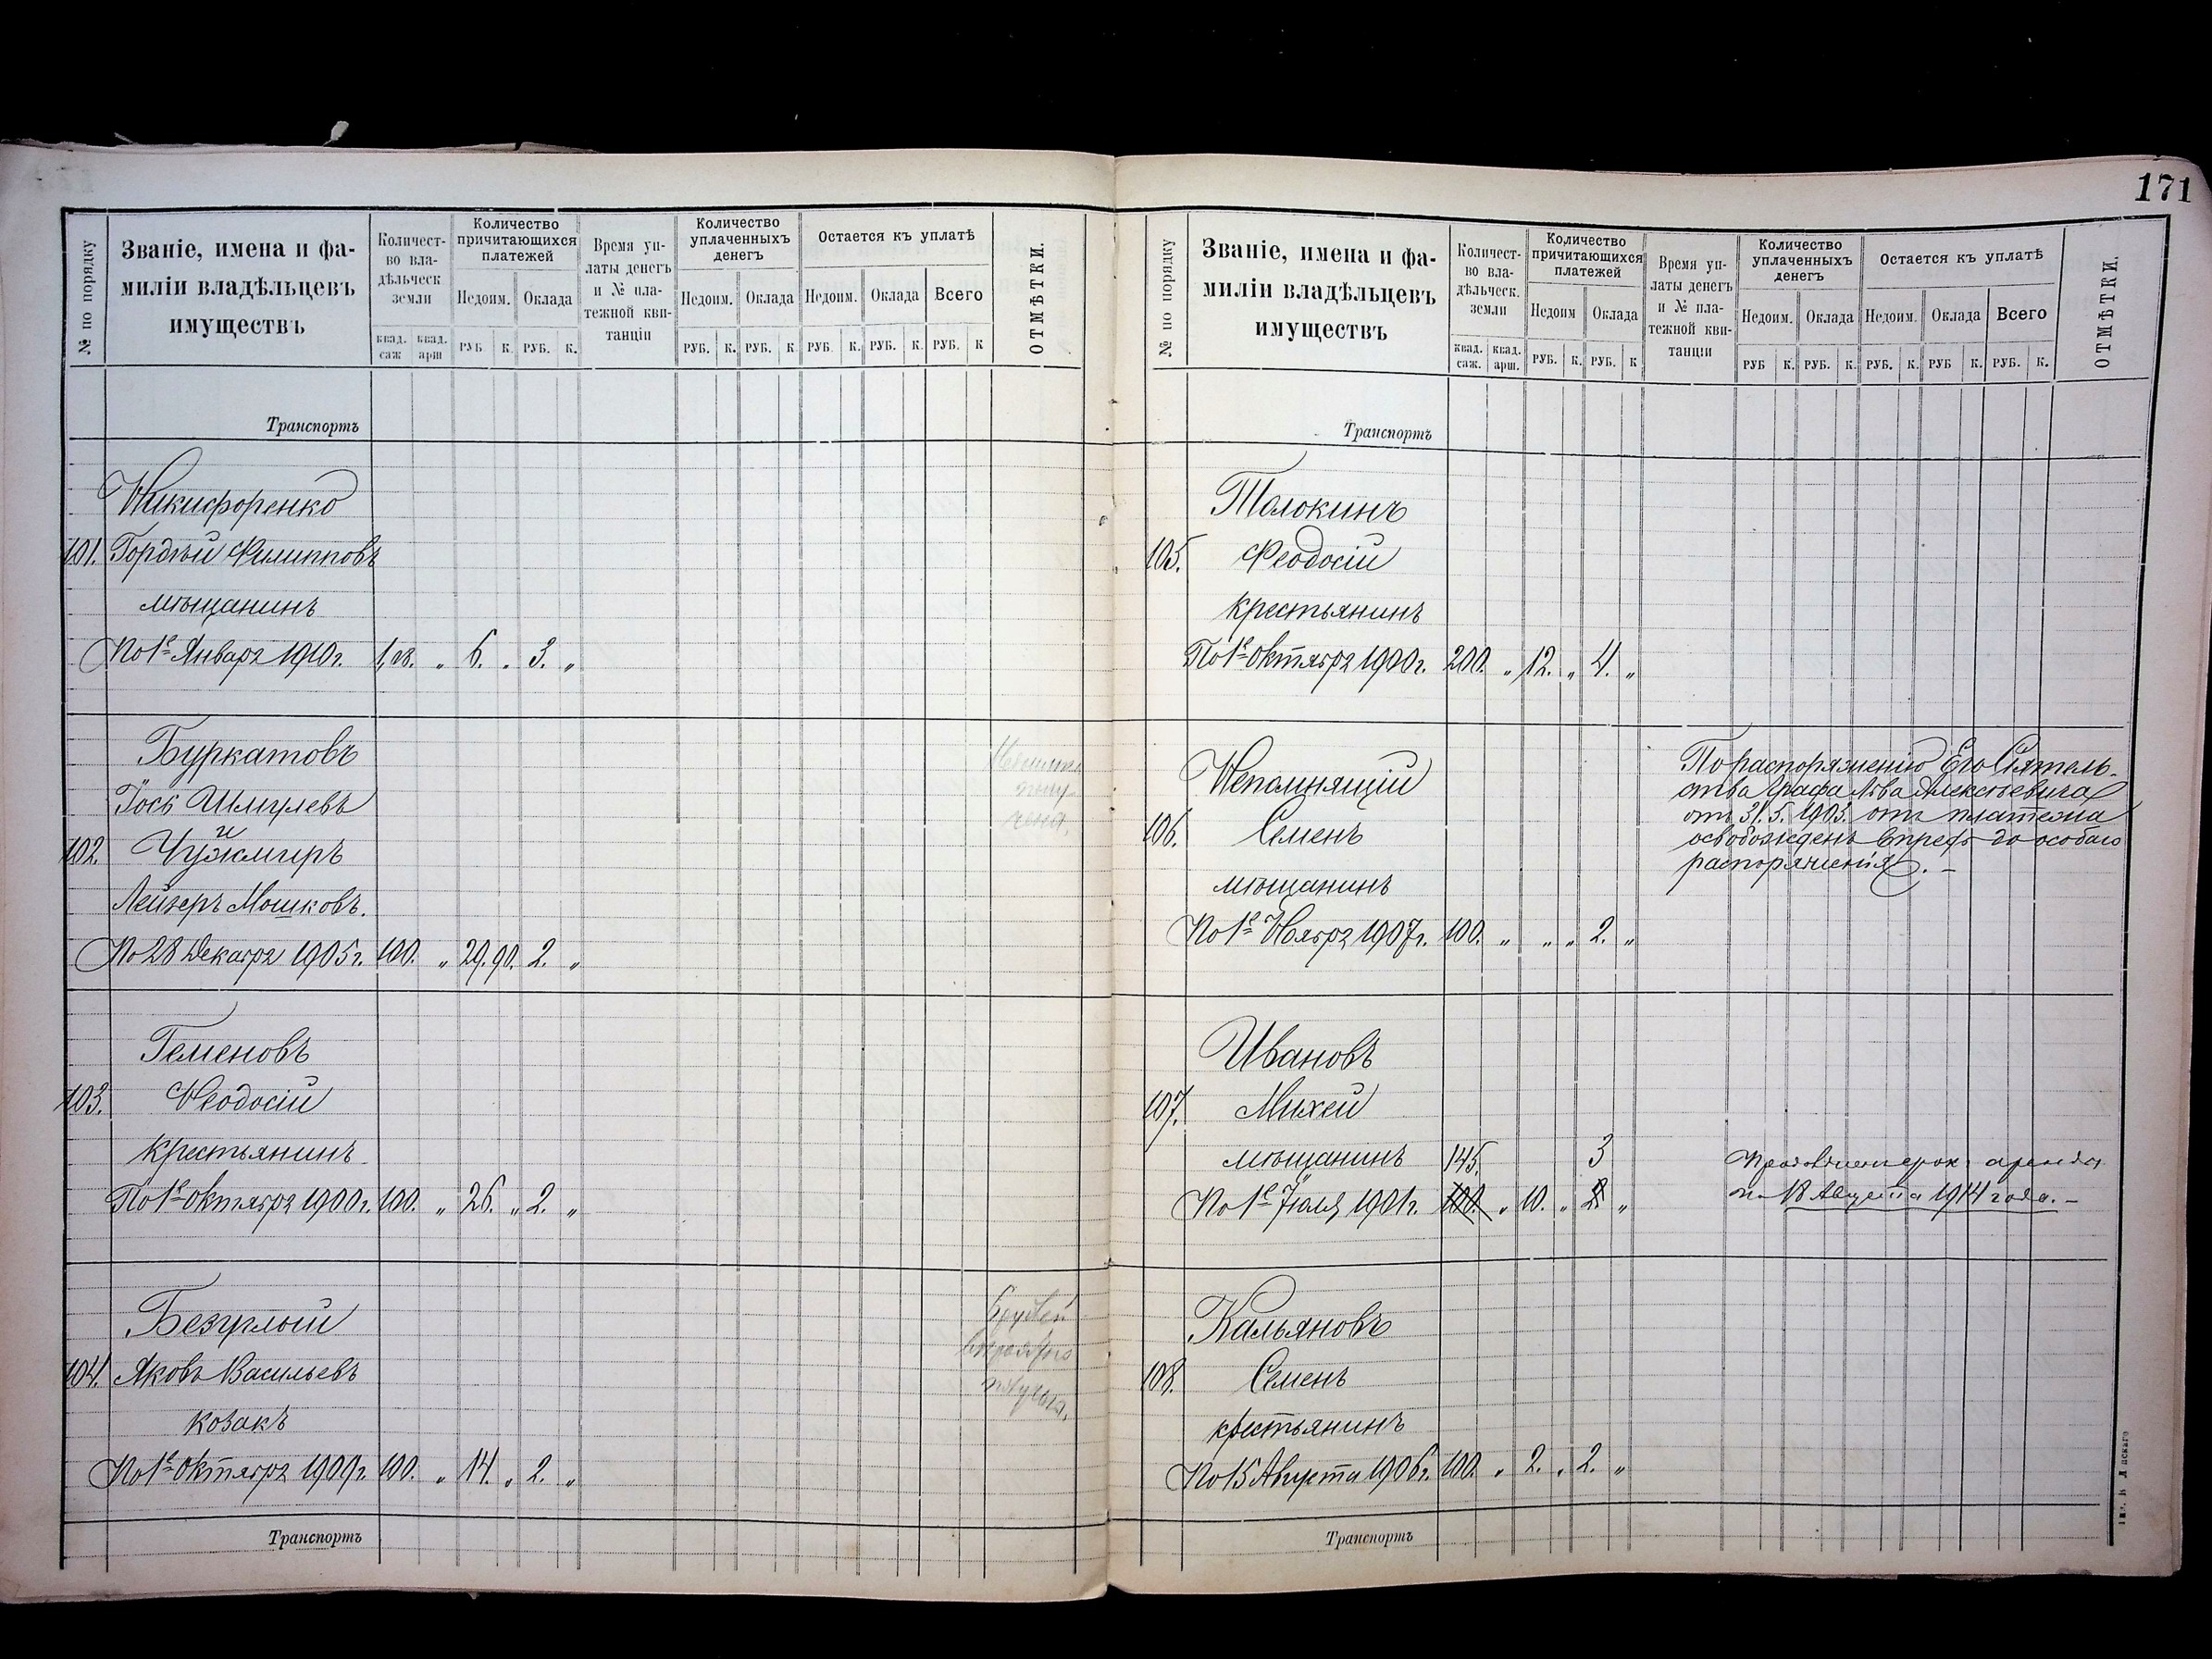 171
№ по порядку
Званіе, имена и фа-
миліи владѣльцевъ
имуществъ
Количест-
во вла-
дѣльческ
земли
квад. саж
квад. арш
Количество
причитающихся
платежей
Недоим.
Оклада
РУБ К. РУБ. К.
Время уп-
латы денегъ
и № пла-
тежной кви-
танціи
Количество
уплаченныхъ
денегъ
Недоим.
Оклада
РУБ. К. РУБ. К
Остается къ уплатѣ
Недоим.
Оклада
Всего
РУБ К. РУБ. К. РУБ. К
ОТМѢТКИ.
Транспортъ
Никифоренко
101. Гордѣй Филипповъ
мѣщанинъ
По 1е Января 1910 г. „ 6. „ 3. „
Буркатовъ
Іось Шмулевъ
и
102. Чужмиръ
Лейзеръ Мошковъ.
По 28 Декабря 1905 г. 100. „ 29. 90. 2. „
Теменовъ
103. Феодосій
крестьянинъ
По 1е Октября 1900 г. 100. „ 26. „ 2. „
Безуглый
104. Яковъ Васильевъ
козакъ
По 1е Октября 1909 г. 100. „ 14. „ 2. „
Транспортъ
№ по порядку
Званіе, имена и фа-
миліи владѣльцевъ
имуществъ
Количест-
во вла-
дѣльческ.
земли
квад. саж.
квад. арш.
Количество
причитающихся
платежей
Недоим
Оклада
РУБ. К. РУБ. К
Время уп-
латы денегъ
и № пла-
тежной кви-
танціи
Количество
уплаченныхъ
денегъ
Недоим.
Оклада
РУБ К. РУБ. К.
Остается къ уплатѣ
Недоим.
Оклада
Всего
РУБ. К. РУБ К. РУБ. К.
ОТМѢТКИ.
Транспортъ
Толокинъ
105. Феодосій
крестьянинъ
По 1е Октября 1900 г. 200. „ 12. „ 4. „
Непомнящій
106. Семенъ
мѣщанинъ
По 1е Ноября 1907 г. 100. „ „ „ 2. „
По распоряженію Его Сіятель-
ства Графа Льва Алексѣевича
отъ 31. 5. 1903. отъ платежа
освобожденъ впредь до особаго
распоряженія. –
Ивановъ
107. Михей
мѣщанинъ 145. 3
По 1е Іюля 1901 г. 100. „ 10. „ 2 „
аренды
по 18 Августа 1914 года. –
Кальяновъ
108. Семенъ
крестьянинъ
По 15 Августа 1906 г. 100. „ 2. „ 2. „
Транспортъ